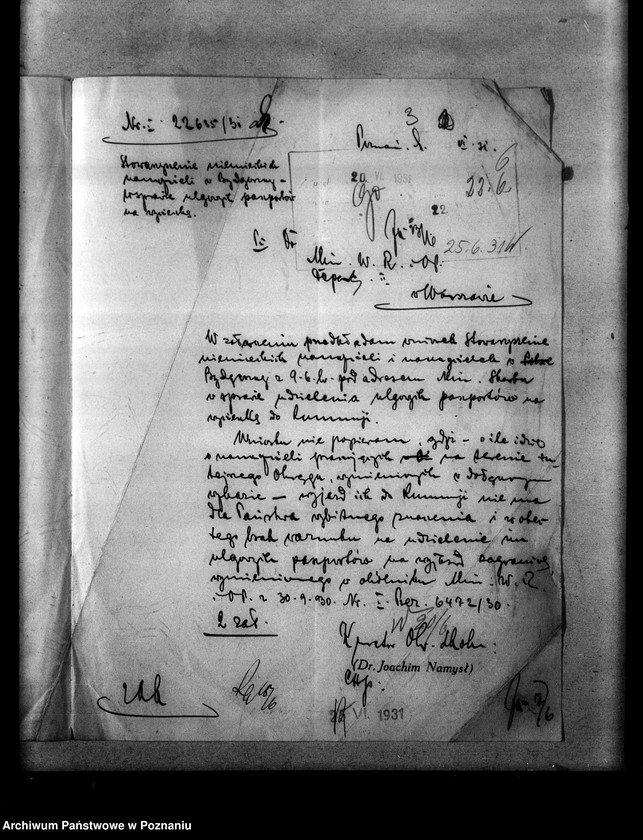 Nr. I. 22635/31
3
Poznań, d. VI. 31.
Stowarzyszenie niemieckich
nauczycieli w Bydgoszczy –
w sprawie ulgowych paszportów
na wycieczkę.
20 VI 1931
23/6
22
25.6.31
Min. W. R. i O. P.
Departy. II
w Warszawie
W załączeniu przedkładam wniosek Stowarzyszenia
niemieckich nauczycieli i nauczycielek w
Bydgoszczy z 9.6. br. pod adresem Min. Skarbu
w sprawie udzielenia ulgowych paszportów na
wycieczkę do Rumunji.
Wniosku nie popieram, gdyż – o ile idzie
o nauczycieli pracujących na terenie tu-
tejszego Okręgu, wymienionych w dołączonym
wykazie – wyjazd ich do Rumunji nie ma
dla Państwa wybitnego znaczenia i wobec
tego brak warunku na udzielenie im
ulgowych paszportów na wyjazd zagranicę,
wymienionego w okólniku Min. W. R.
i O. P. z 30.9.930. Nr. I. Prez. 6472/30.
2 zał.
Kurator Okr. Szkoln:
(Dr. Joachim Namysł)
VI. 1931
Archiwum Państwowe w Poznaniu